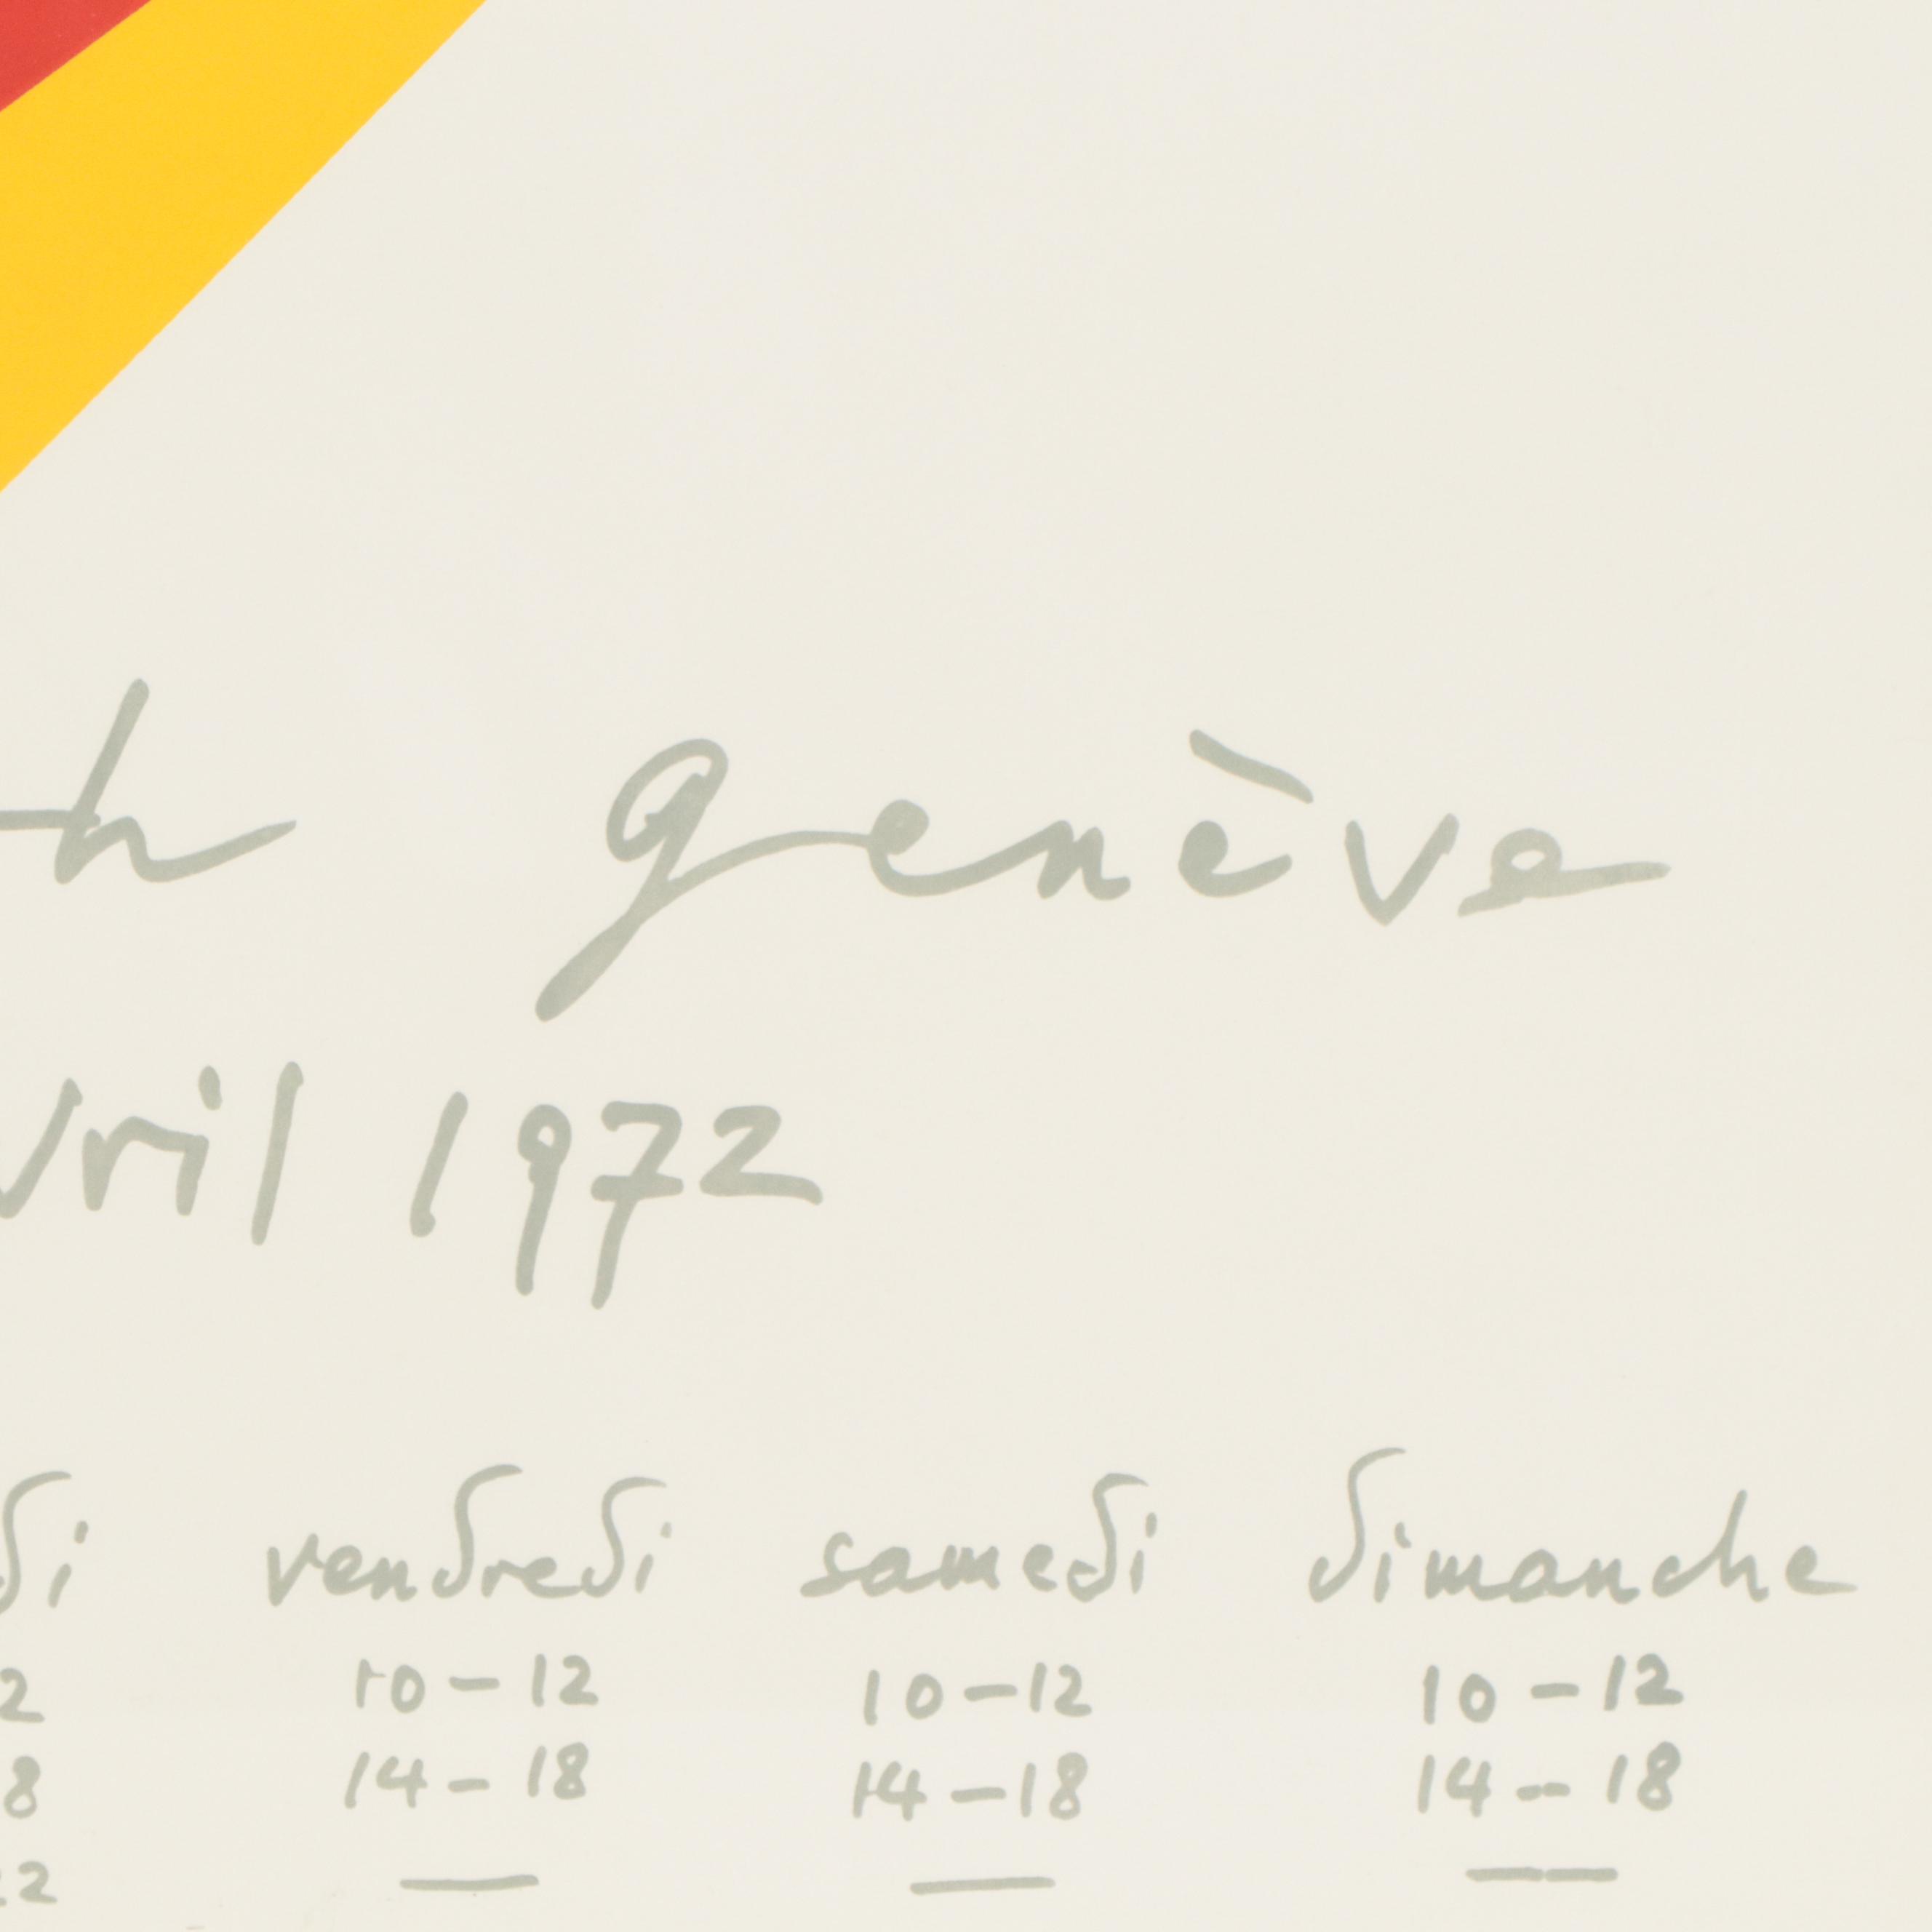 h genève
vril 1972
di vendredi samedi dimanche
2 10-12 10-12 10-12
8 14-18 14-18 14-18
22 — — —